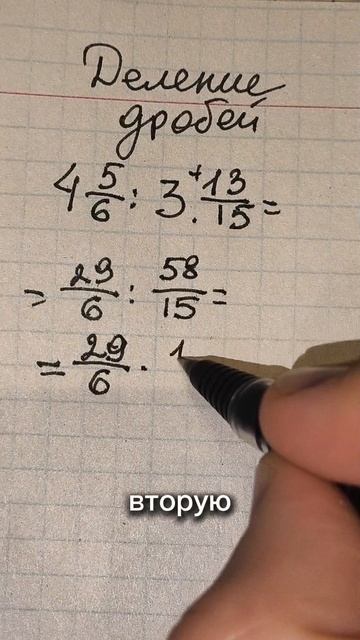 Деление
дробей
4 5/6 : 3 + 13/15 =
= 29/6 : 58/15 =
= 29/6 · 1
вторую